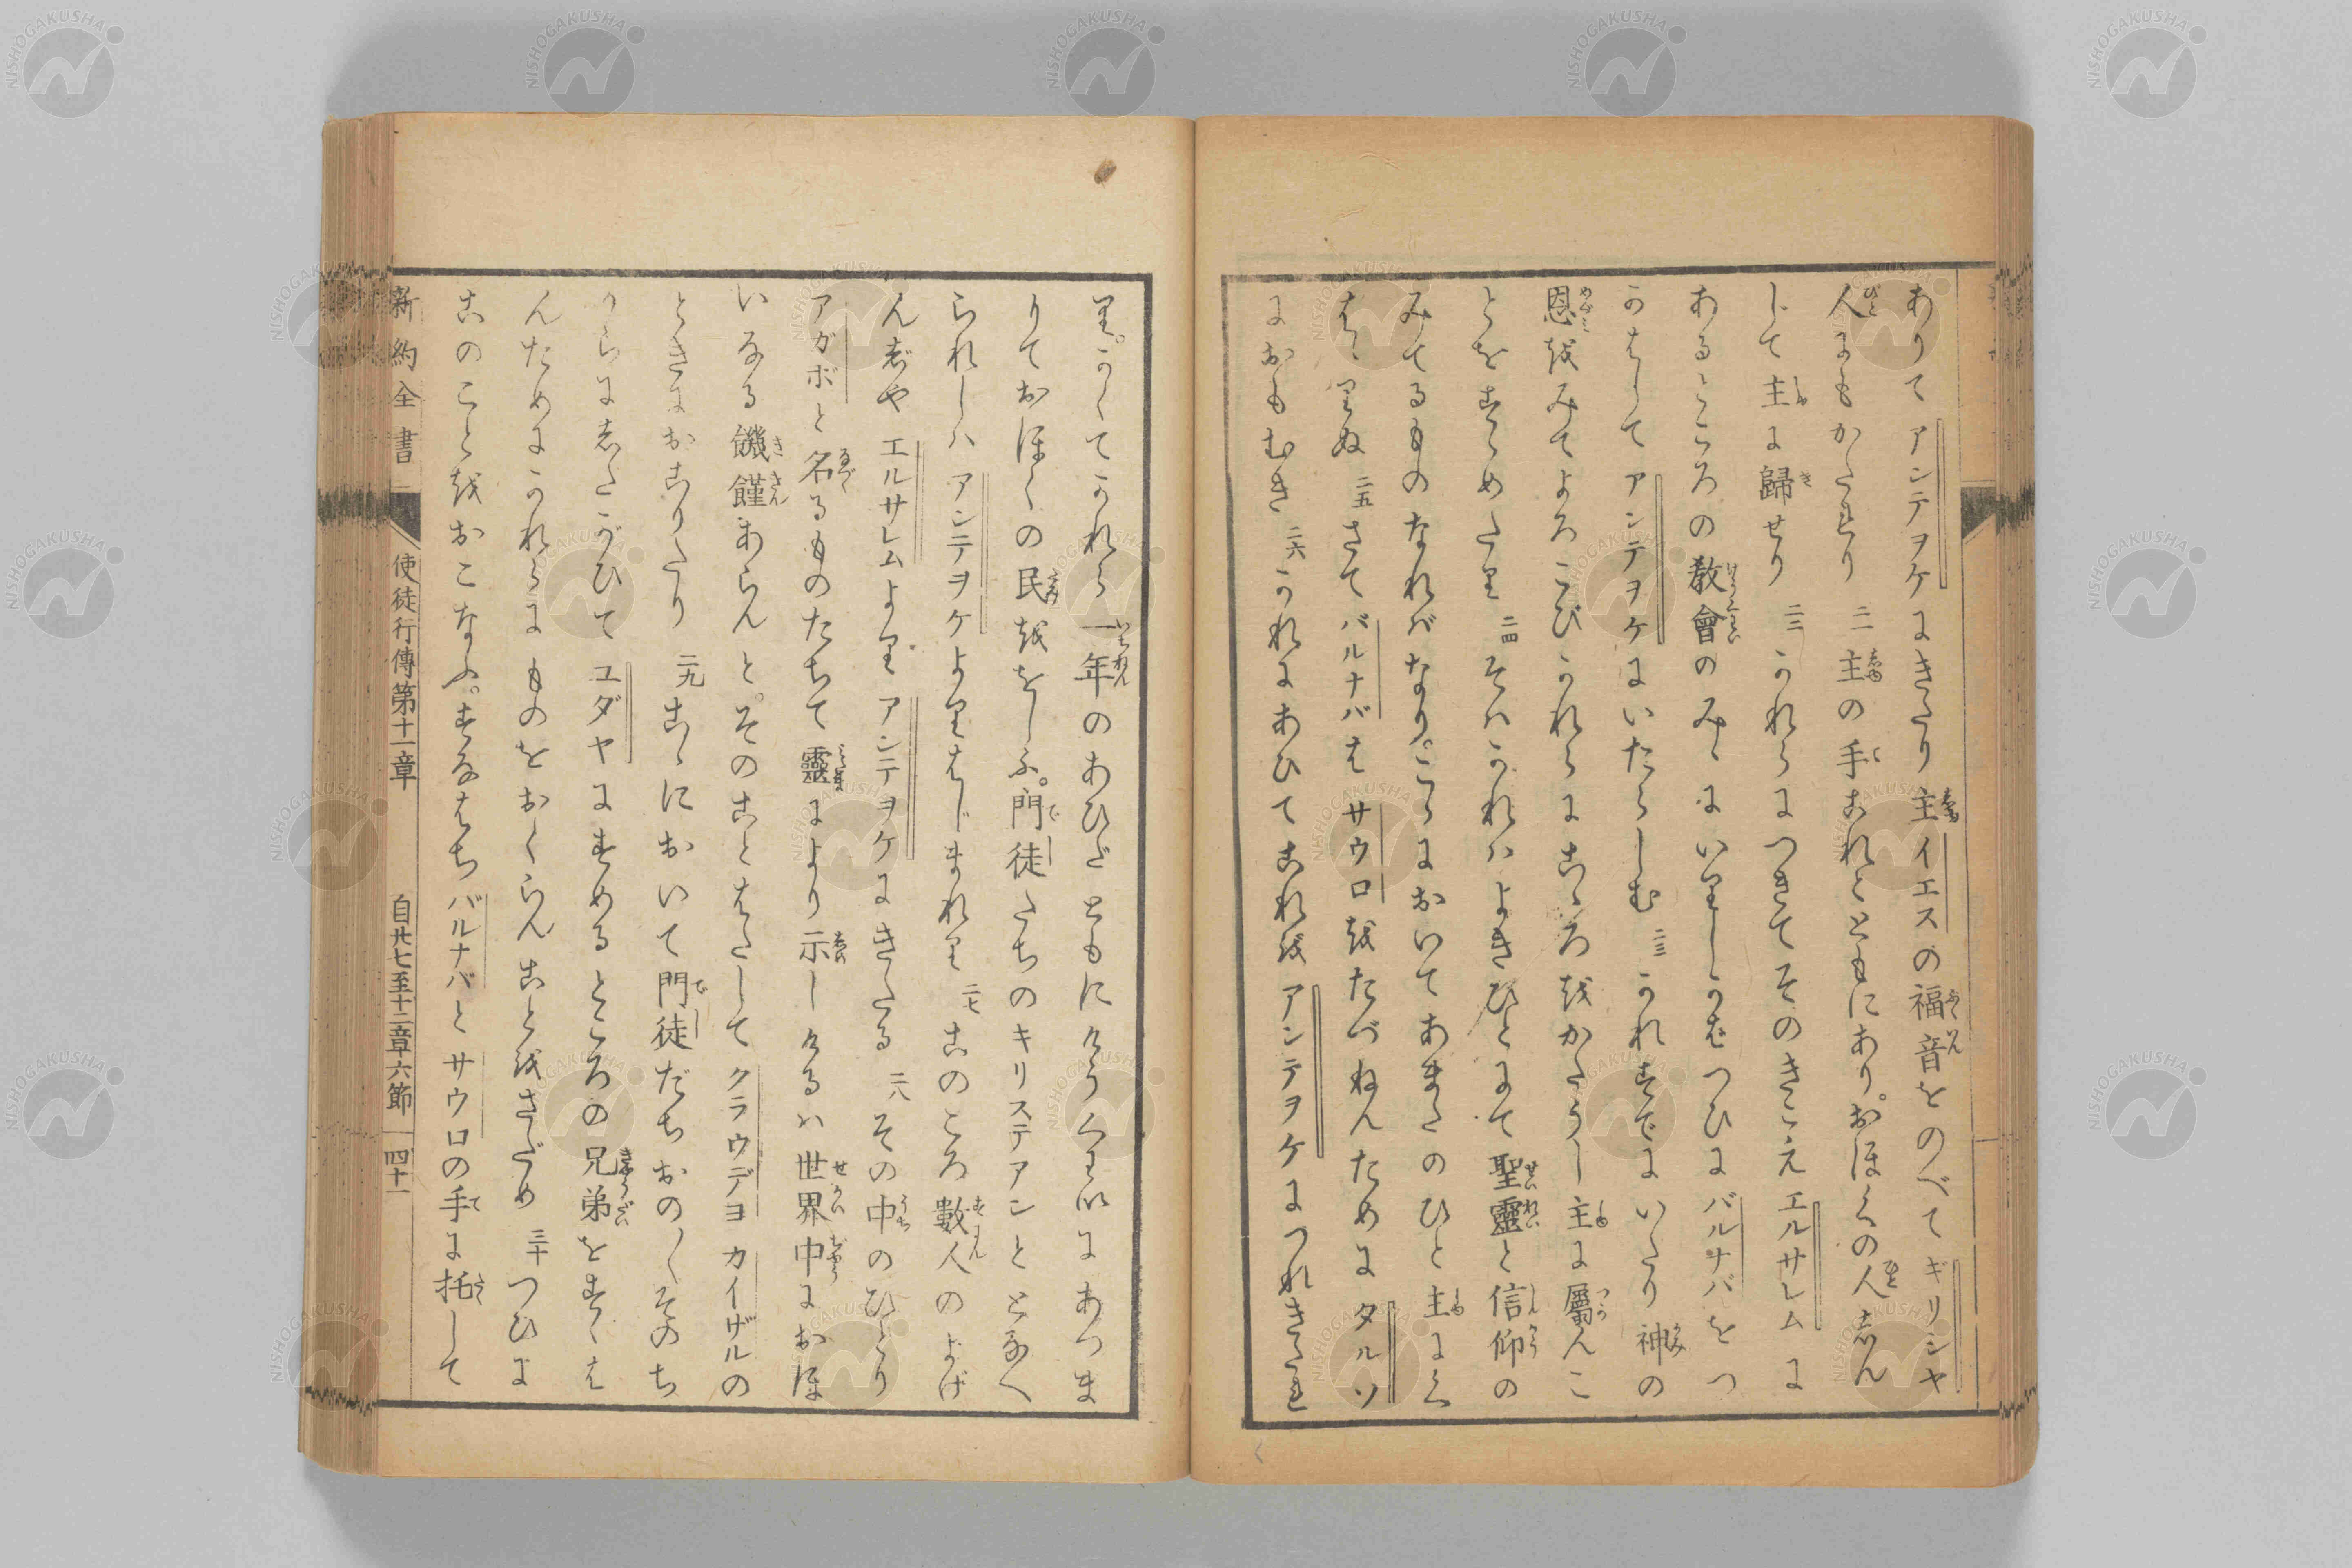 ありてアンテヲケにきたり主イエスの福音をのべてギリシヤ
人にもかたれり 二一 主の手これとともにありおほくの人しん
じて主に歸せり 二二 かれらにつきてそのきこえエルサレムに
あるところの教會のみゝにいりしかばつひにバルナバをつ
かはしてアンテヲケにいたらしむ 二三 かれすでにいたり神の
恩をみてよろこびかれらにこゝろをかたうし主に屬んこ
とをすゝめたり 二四 そはかれはよきひとにて聖靈と信仰の
みてるものなればなりこゝにおいてあまたのひと主にく
はゝりぬ 二五 さてバルナバはサウロをたづねんためにタルソ
におもむき 二六 かれにあひてこれをアンテヲケにつれきたれ
り。かくてかれら一年のあひだともにけうくわいにあつま
りておほくの民ををしふ。門徒たちのキリステアンととなへ
られしはアンテヲケよりはじまれり 二七 このころ數人のよげ
んしやエルサレムよりアンテヲケにきたる 二八 その中のひとり
アガボと名るものたちて靈により示しけるは世界中におほ
いなる饑饉あらんと。そのことはたしてクラウデヨカイザルの
ときにおこりたり 二九 こゝにおいて門徒だちおの〱そのち
からにしたがひてユダヤにすめるところの兄弟をすくは
んためにかれらにものをおくらんことをさだめ 三十 つひに
このことをおこなふ。すなはちバルナバとサウロの手に托して
新約全書 使徒行傳第十一章 自廿七至十二章六節 四十一